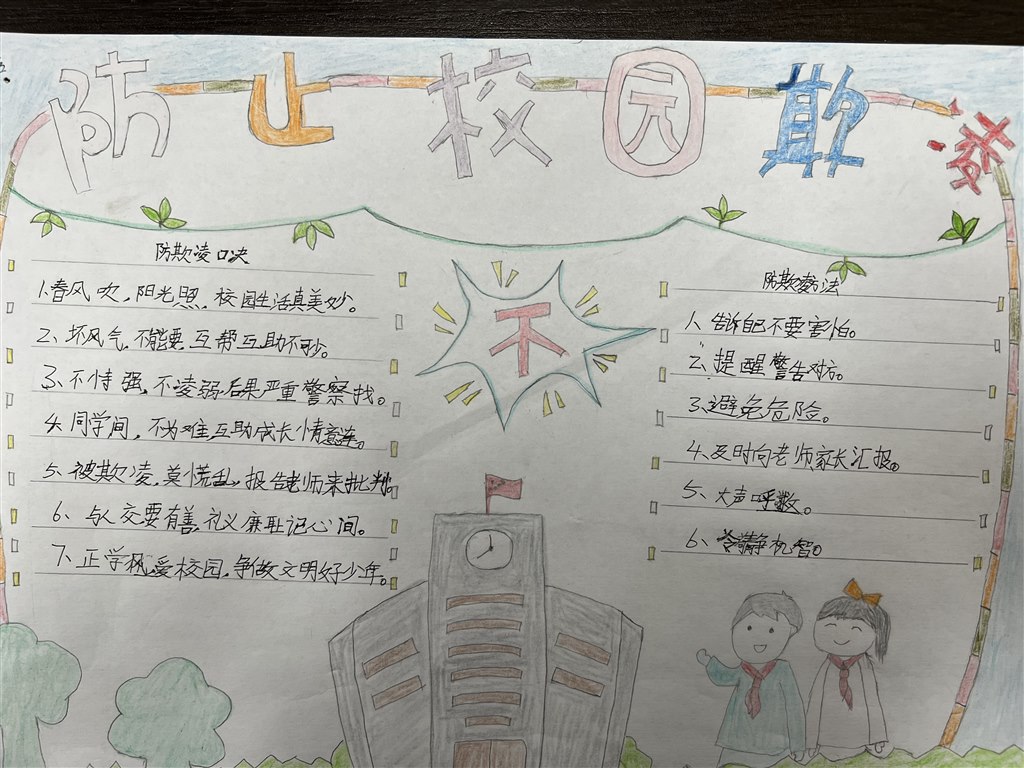 防止校园欺凌
防欺凌口决
1.春风吹,阳光照,校园生活真美妙。
2、坏风气,不能要,互帮互助不可少。
3、不恃强,不凌弱,后果严重警察找。
4、同学间,不为难互助成长情意连。
5、被欺凌,莫慌乱,报告老师来批判。
6、与人交要有善,礼义廉耻记心间。
7、正学风,爱校园,争做文明好少年。
不
防欺凌方法
1、告诉自己不要害怕。
2、提醒警告对方。
3、避免危险。
4、及时向老师家长汇报。
5、大声呼救。
6、冷静机智。